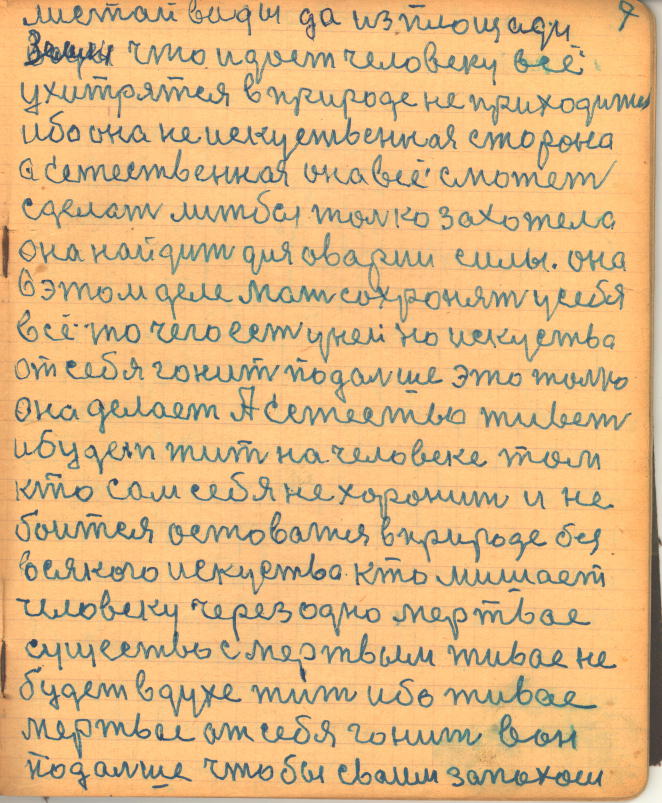 7
листай воды да из площади
Земли что идоет человеку всё
ухитрятся в природе не приходится
ибо она не искуственная сторона
а естественная она всё сможет
сделат лиш бы толко захотела
она найдит для аварии силы. она
в этом деле мат сохронят у себя
всё то чего ест у ней но искуства
от себя гонит подалше это толко
она делает А естество живет
и будет жит на человеке том
кто сам себя не хоронит и не
боится остоватя в природе без
всякого искуства. кто мишает
человеку через одно мертвае
существо с мертвым живае не
будет в духе жит ибо живае
мертвае от себя гонит вон
подалше что бы своим запохом